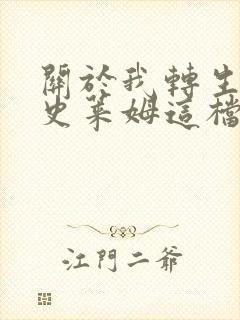 關於我轉生
史萊姆這檔
江門二爺